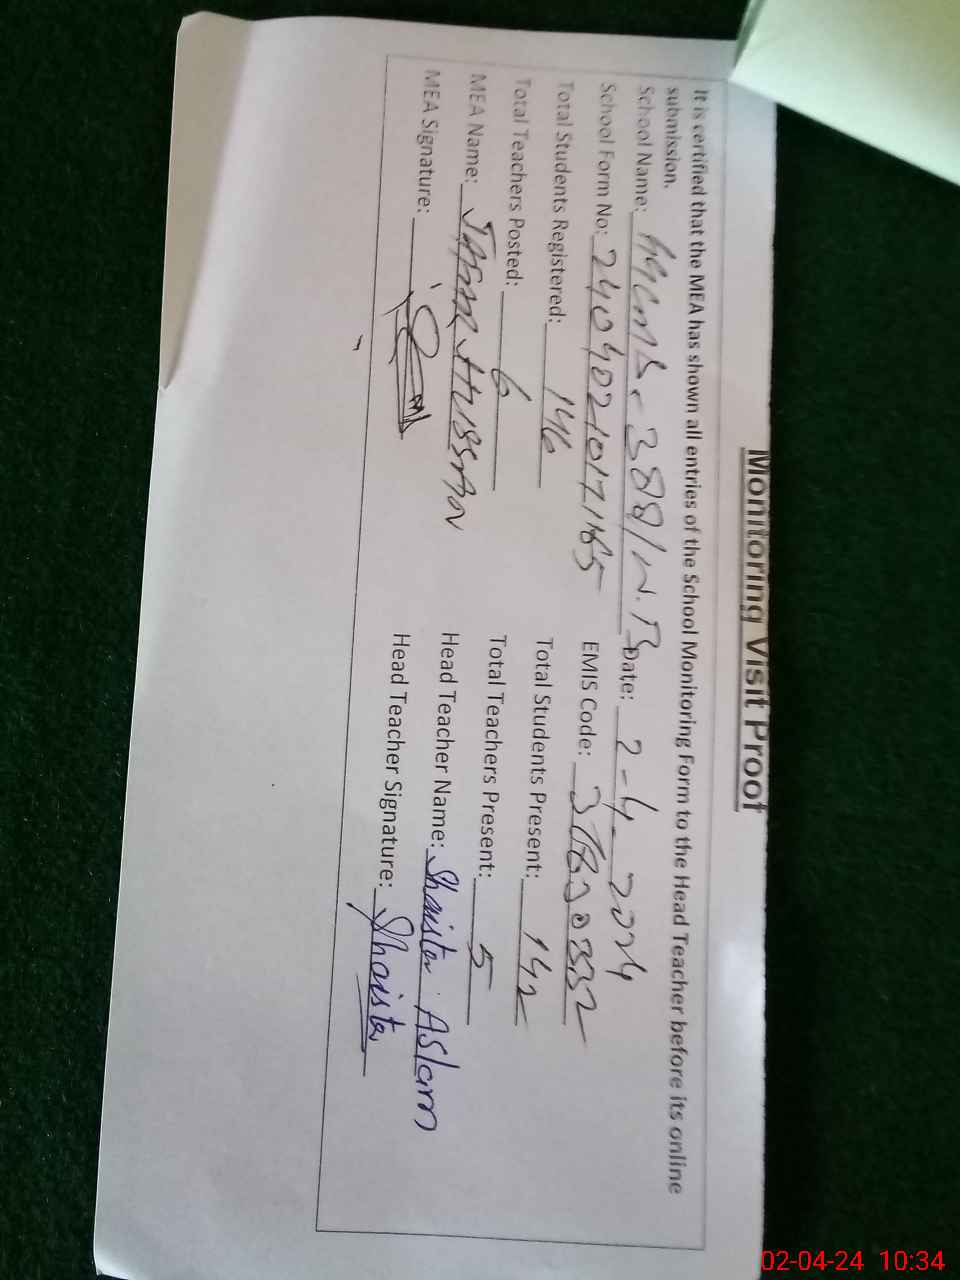 Monitoring Visit Proof
It is certified that the MEA has shown all entries of the School Monitoring Form to the Head Teacher before its online
submission.
School Name: 388/W.B Date: 2-4-2024
School Form No: EMIS Code:
Total Students Registered: 146 Total Students Present: 142
Total Teachers Posted: 6 Total Teachers Present: 5
MEA Name: Hussain Head Teacher Name: Shaista Aslam
MEA Signature: Head Teacher Signature: Shaista
02-04-24 10:34